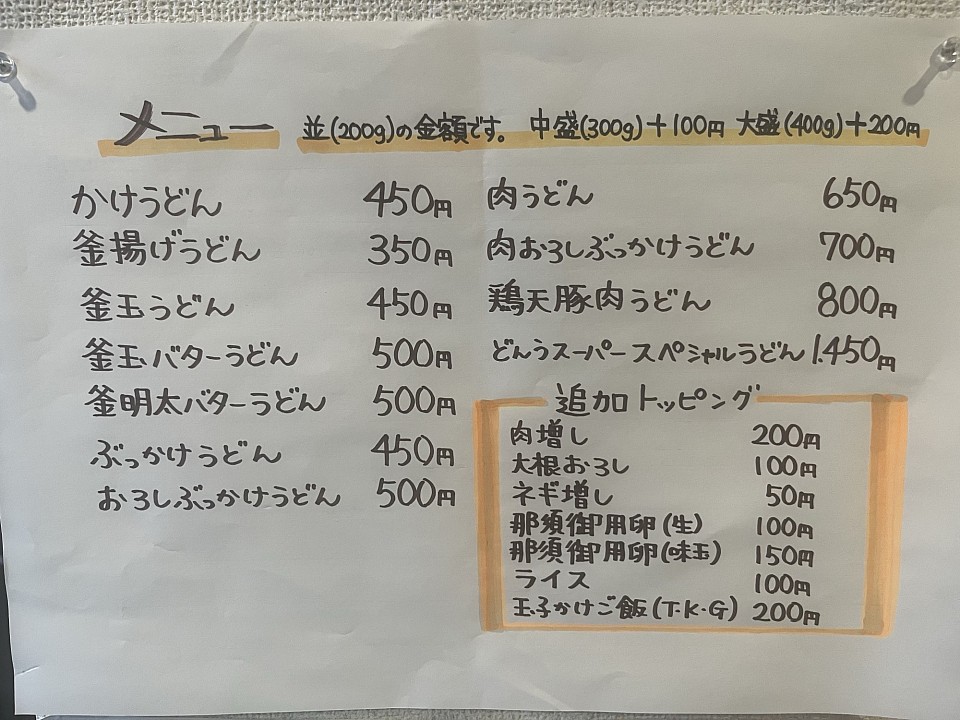 メニュー 並(200g)の金額です。 中盛(300g)+100円 大盛(400g)+200円
かけうどん 450円
釜揚げうどん 350円
釜玉うどん 450円
釜玉バターうどん 500円
釜明太バターうどん 500円
ぶっかけうどん 450円
おろしぶっかけうどん 500円
肉うどん 650円
肉おろしぶっかけうどん 700円
鶏天豚肉うどん 800円
どんうスーパースペシャルうどん 1.450円
追加トッピング
肉増し 200円
大根おろし 100円
ネギ増し 50円
那須御用卵(生) 100円
那須御用卵(味玉) 150円
ライス 100円
玉子かけご飯(T・K・G) 200円